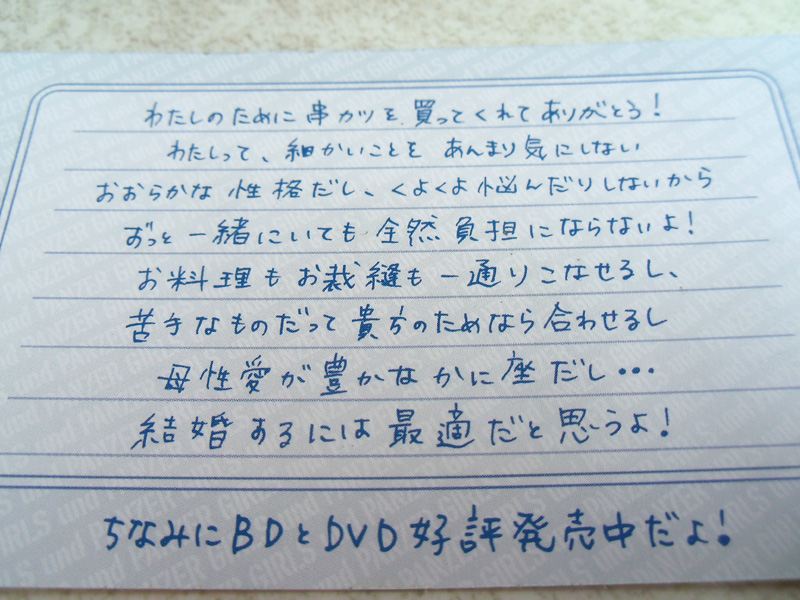 わたしのために串カツを買ってくれてありがとう!
わたしって、細かいことをあんまり気にしない
おおらかな性格だし、くよくよ悩んだりしないから
ずっと一緒にいても全然負担にならないよ!
お料理もお裁縫も一通りこなせるし、
苦手なものだって貴方のためなら合わせるし
母性愛が豊かなかに座だし…
結婚するには最適だと思うよ!
ちなみにBDとDVD好評発売中だよ!
GIRLS und PANZER